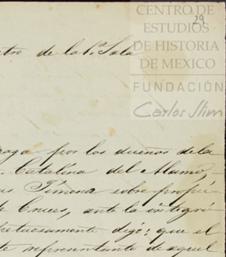 CENTRO DE
ESTUDIOS
DE HISTORIA
DE MEXICO
FUNDACIÓN
Carlos Slim
29
tro de la 1ª Sala
por los dueños de la
Catalina del Alamo,
Jimena sobre propie
Cruces, ante la
petuosamente digo: que el
te representante de aquel